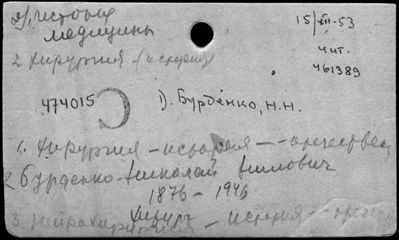 а) история медицины
15/XII-53
2 Хирургия (история)
чит.
461389
474015 С 1). Бурденко, Н.Н.
1. Хирургия - история - - отечествен
2 Бурденко Николай Нилович
1876 - 1946
хирург
3 Нейрохирургия - история - - отечест